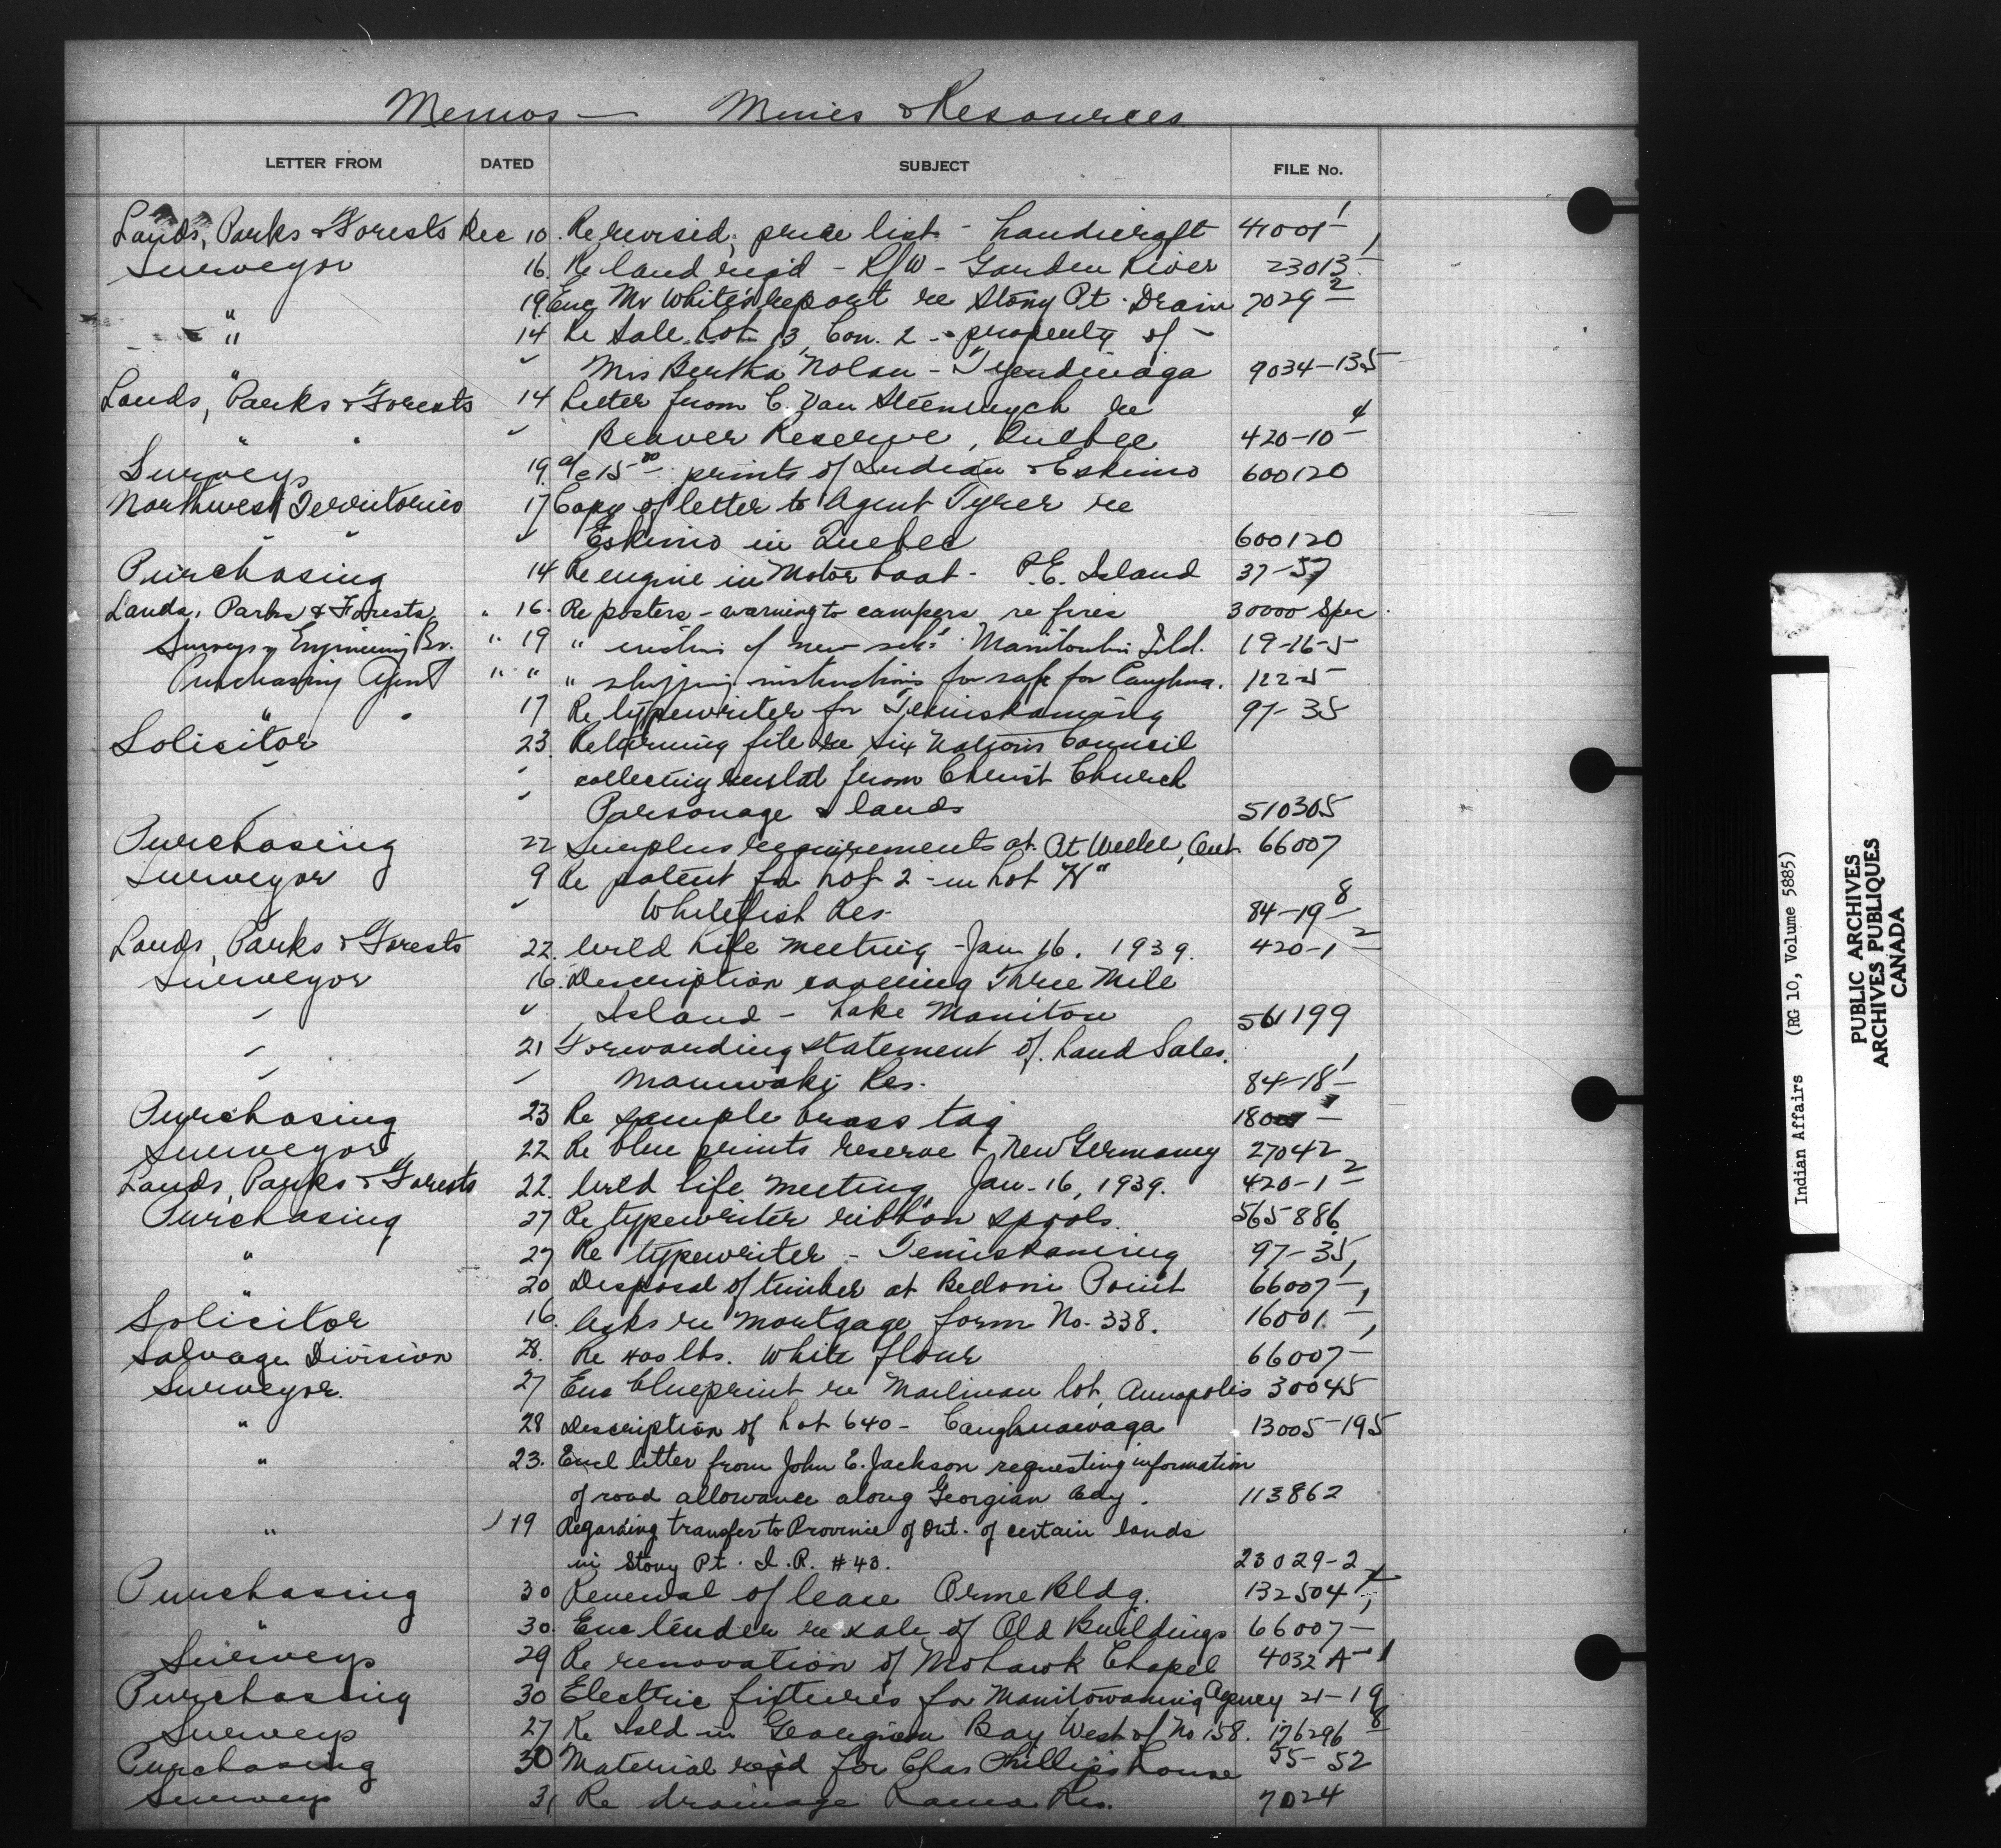 Memos — Mines & Resources
LETTER FROM DATED SUBJECT FILE No.
Lands, Parks & Forests Dec 10 Re revised, price list - handicraft 41001-1
Surveyor 16. Re land req'd - R/W - Garden River 23013-1
" 19 Enc Mr White's report re Stony Pt. Drain 7029-2
" 14 Re Sale Lot 13, Con. 2 - property of -
" Mrs Bertha Nolan - Tyendinaga 9034-135
Lands, Parks & Forests 14 Letter from C. Van re
" " Beaver Reserve, Quebec 420-10-4
Surveys 19. a/c 15.00 prints of Indian & Eskimo 600120
Northwest Territories 17 Copy of letter to Agent Tyrer re
" " Eskimo in Quebec 600120
Purchasing 14 Re engine in Motor boat - P.E. Island 37-57
Lands, Parks & Forests " 16. Re posters - warning to campers re fires 30000 Spec.
Surveys & Engineering Br. " 19 " erection of new sch: Manitoulin Isld. 19-16-5
Purchasing Agent " " " shipping instructions for safe for Caughna. 122-5
" 17 Re typewriter for Temiskaming 97-35
Solicitor 23 Returning file re Six Nations Council
" collecting rental from Christ Church
Parsonage & lands 510305
Purchasing 22 Surplus requirements at Pt Weller, Ont. 66007
Surveyor 9 Re patent for Lot 2 - in Lot "H"
Whitefish Res. 84-19-8
Lands, Parks & Forests 22. Wild Life meeting - Jan 16. 1939. 420-1-2
Surveyor 16. Description covering Three Mile
" " Island - Lake Manitou 561199
" 21 Forwarding statement of Land Sales.
" " Maniwaki Res. 84-18-1
Purchasing 23 Re sample brass tag
Surveyor 22 Re blue prints reserve + New Germany 27042
Lands, Parks & Forests 22. Wild life meeting, Jan. 16, 1939. 420-1-2
Purchasing 27 Re typewriter ribbon spools. 565886
" 27 Re typewriter - Temiskaming 97-35,
" 20 Disposal of timber at Point 66007-1
Solicitor 16. Asks re mortgage form No. 338. 16001-1
Salvage Division 28. Re 400 lbs. white flour 66007-1
Surveyor. 27 Enc blueprint re lot, Annapolis 30045
" 28 Description of Lot 640 - Caughnawaga 13005-195
" 23. Encl letter from John E. Jackson requesting information
of road allowance along Georgian Bay. 113862
" 19 Regarding transfer to Province of Ont. of certain lands
in Stony Pt. I.R. #43. 23029-2
Purchasing 30 Renewal of lease Orme Bldg. 132504
" 30. Enc tender re sale of Old Buildings 66007-1
Surveys 29 Re renovation of Mohawk Chapel 4032 A-1
Purchasing 30 Electric fixtures for Manitowaning Agency 21-19
Surveys 27 Re Isld in Georgian Bay West of No 158. 176296-8
Purchasing 30 Material req'd for Chas Phillips house 55-52
Surveys 31 Re drainage Rama Res. 7024
Indian Affairs (RG 10, Volume 5885)
PUBLIC ARCHIVES
ARCHIVES PUBLIQUES
CANADA